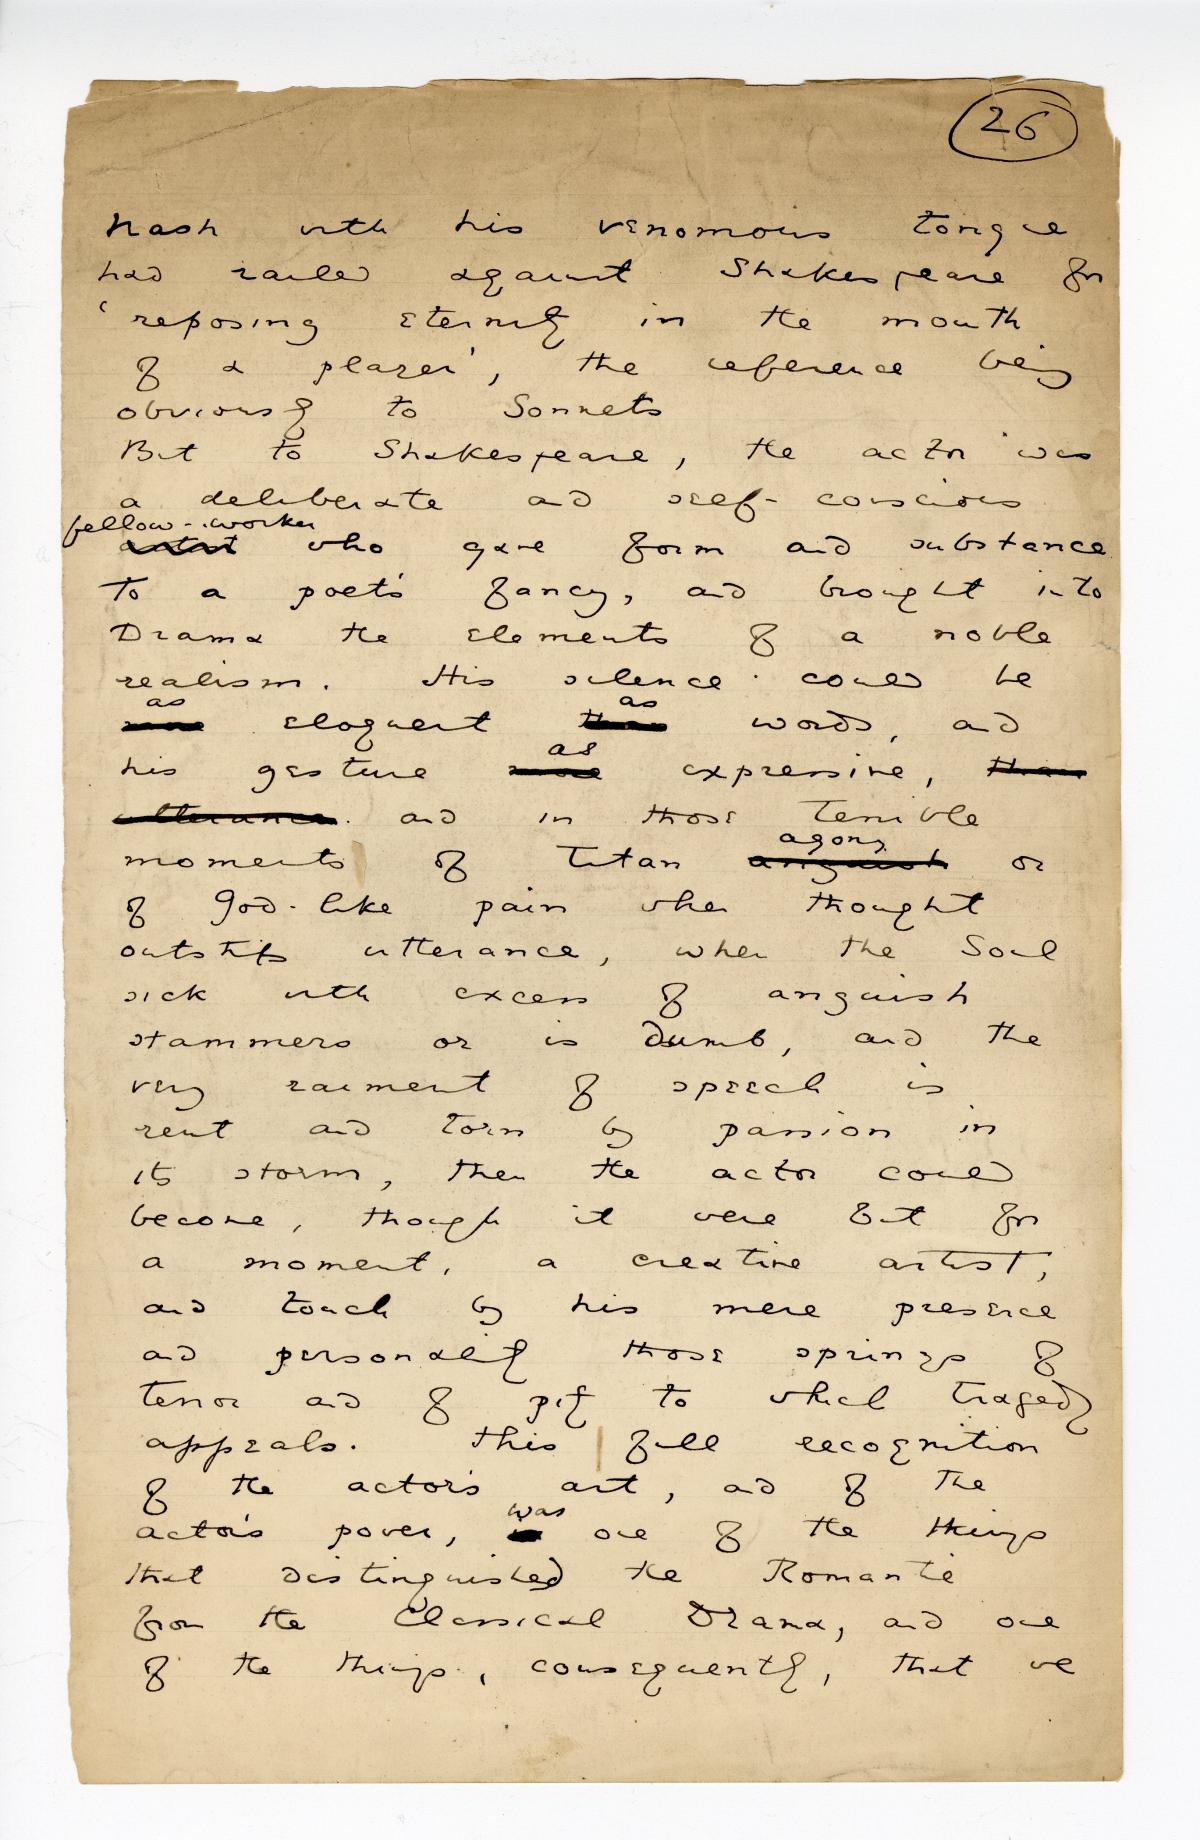 26
Nash with his venomous tongue
had railed against Shakespeare for
'reposing eternity in the mouth
of a player', the reference being
obviously to Sonnets
But to Shakespeare, the actor was
a deliberate and self-conscious
fellow-worker
artist who gave form and substance
to a poet's fancy, and brought into
Drama the elements of a noble
realism. His silence could be
as as
more eloquent than words, and
as
his gesture more expressive, than
utterance. and in those terrible
agony
moments of Titan anguish or
of god-like pain when thought
outstrips utterance, when the Soul
sick with excess of anguish
stammers or is dumb, and the
very raiment of speech is
rent and torn by passion in
its storm, then the actor could
become, though it were but for
a moment, a creative artist,
and touch by his mere presence
and personality those springs of
terror and of pity to which tragedy
appeals. This full recognition
of the actor's art, and of the
was
actor's power, one of the things
that distinguished the Romantic
from the Classical Drama, and one
of the things, consequently, that we